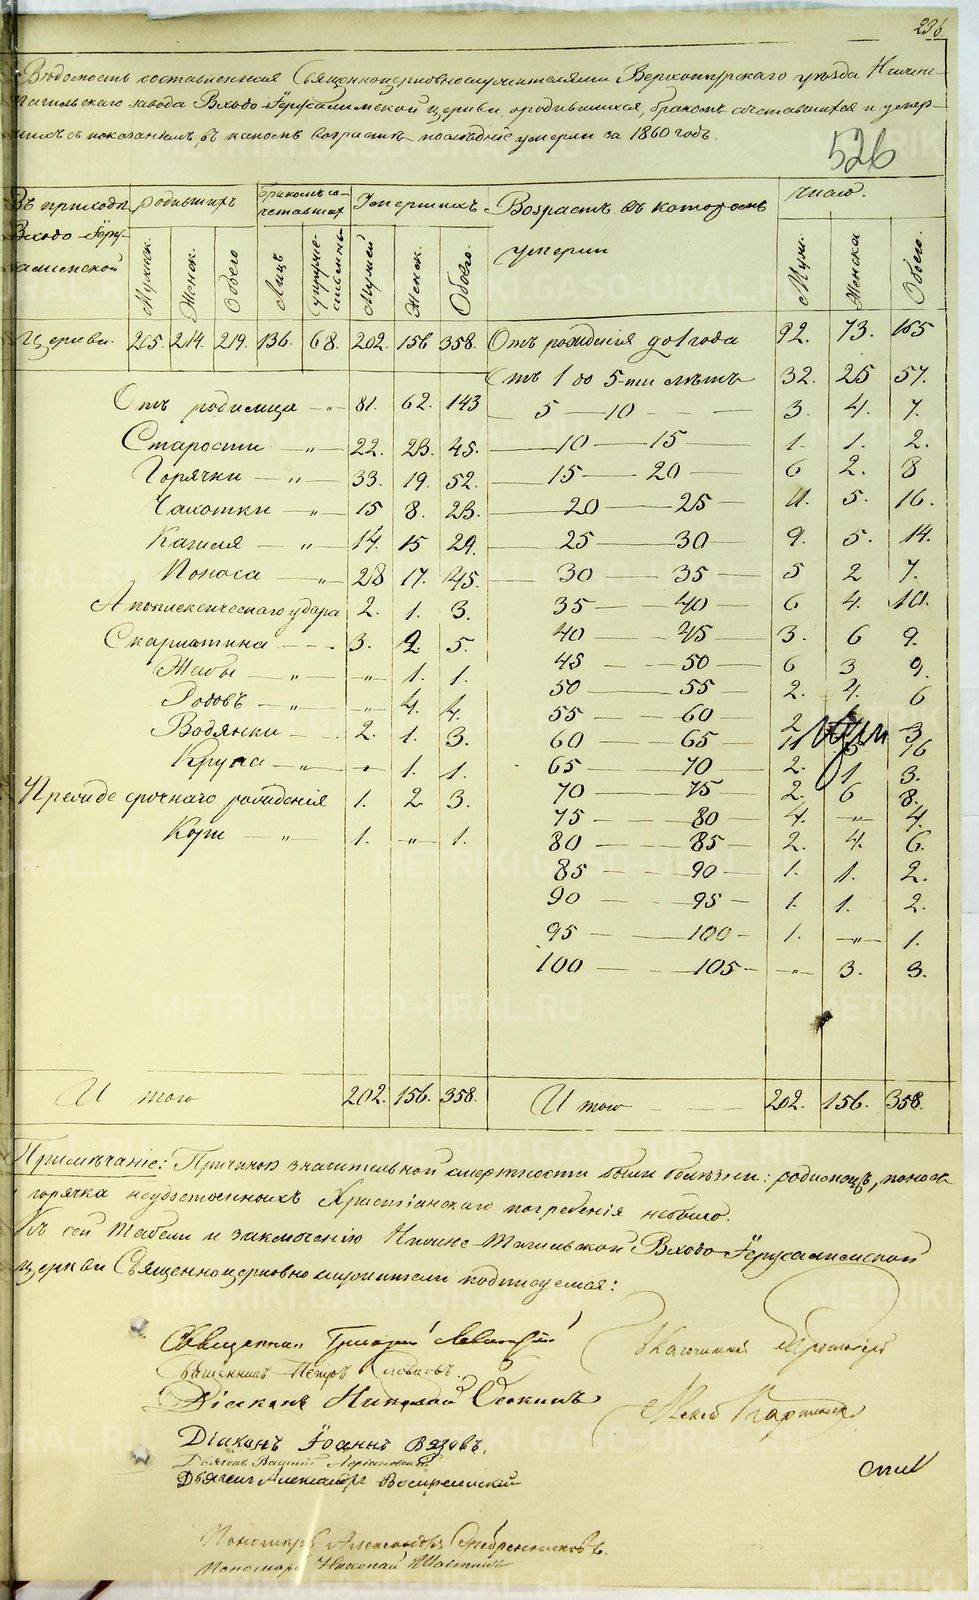 236
Вѣдомость составленная Священноцерковнослужителями Верхотурскаго уѣзда Нижне-
тагильскаго завода Входо-Іерусалимской церкви, о родившихся, бракомъ сочетавшихся и умер-
шихъ съ показаніемъ, въ какомъ возрастѣ послѣдніе умерли за 1860 годъ.
526
Въ приходѣ Входо-Іерусалимской церкви.
родившихъ бракомъ сочетавших Умершихъ Возрастъ въ которомъ умерли число.
Мужск. Женск. Обоего Лицъ Мужей Женск. Обоего. Муж. Женска Обоего.
205. 214. 219. 136. 68. 202. 156 358. Отъ рожденія до 1 года 92. 73. 165
Отъ 1 до 5-ти лѣтъ 32. 25 57.
Отъ родимца — „— 81. 62. 143 5 — 10 3. 4. 7.
Старости — „— 22. 23. 45. 10 — 15 1. 1. 2.
Горячки — „— 33. 19. 52. 15 — 20 6 2. 8
Чахотки — „— 15 8. 23. 20 — 25 11. 5. 16.
Кашля — „— 14. 15 29. 25 — 30 9. 5. 14.
Поноса „— 28 17. 45. 30 — 35 5 2 7.
Апоплексическаго удара 2. 1. 3. 35 — 40 6 4. 10.
Скарлатина 3. 2. 5. 40 — 45 3. 6 9.
Жабы — „— „ 1. 1. 45 — 50 6 3 9.
Родовъ — „— „ 4. 4. 50 — 55 2. 4. 6
Водянки 2. 1. 3. 55 — 60 2 3
60 — 65 11 5 16
Крупа — „— „ 1. 1. 65 — 70 2. 1 3.
Прежде срочнаго рожденія 1. 2 3. 70 — 75 2. 6 8.
75 — 80 4. „ 4.
Кори — „ 1. „ 1. 80 — 85 2. 4. 6.
85 — 90 1. 1. 2.
90 — 95 1. 1. 2.
95 — 100 1. „ 1.
100 — 105 „ 3. 3.
Итого 202. 156. 358. Итого 202. 156. 358.
Примѣчаніе: Причиною значительной смертности были болѣзни: родимецъ, поносъ
горячка неудостоенныхъ Христіанскаго погребенія небыло.
Къ сей Табели и заключенію Нижне-Тагильской Входо-Іерусалимской
церкви Священноцерковнослужители подписуемся:
Священник Григорий
Священникъ Петръ
Діаконъ Николай
Діаконъ Іоаннъ Вязовъ.
Дьячекъ
Дьячекъ Александръ Воскресенский
Пономарь Александръ Серебренниковъ.
Пономарь Николай
METRIKI.GASO-URAL.RU